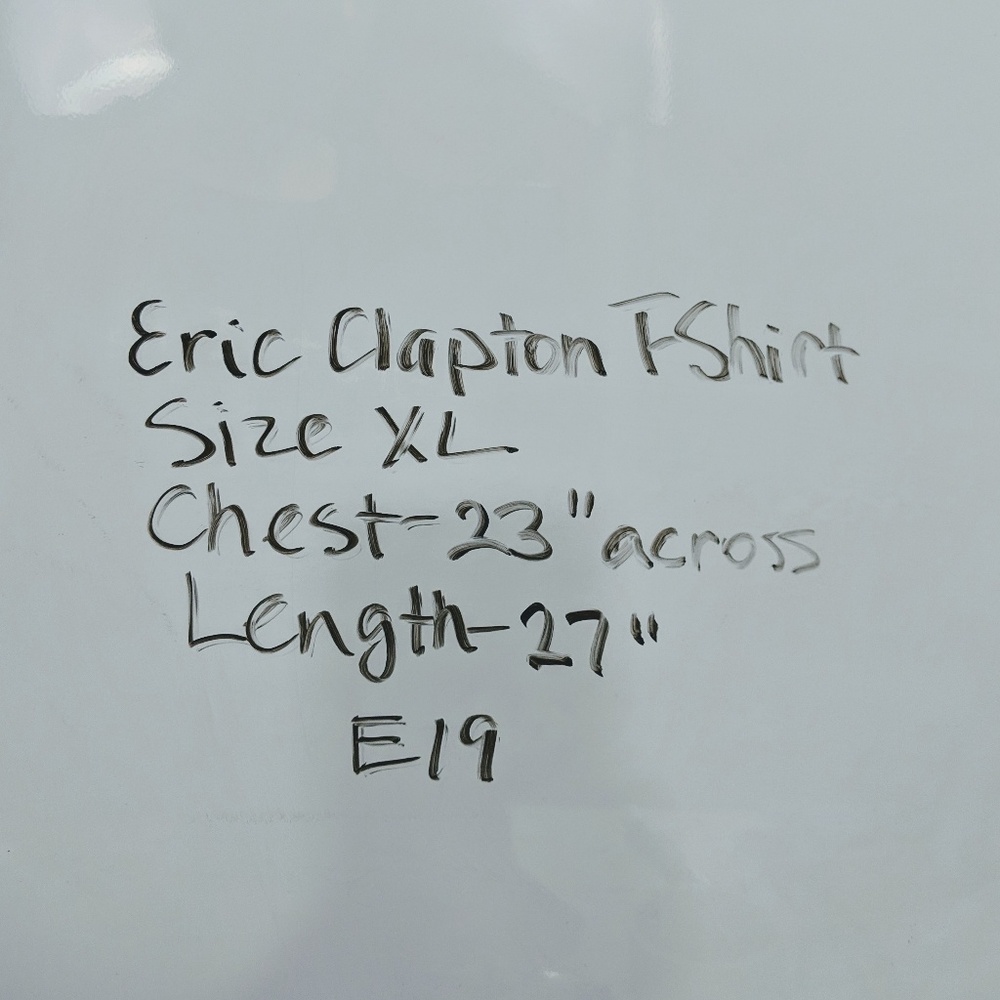 Eric Clapton T-Shirt
Size XL
Chest-23" across
Length-27"
E19